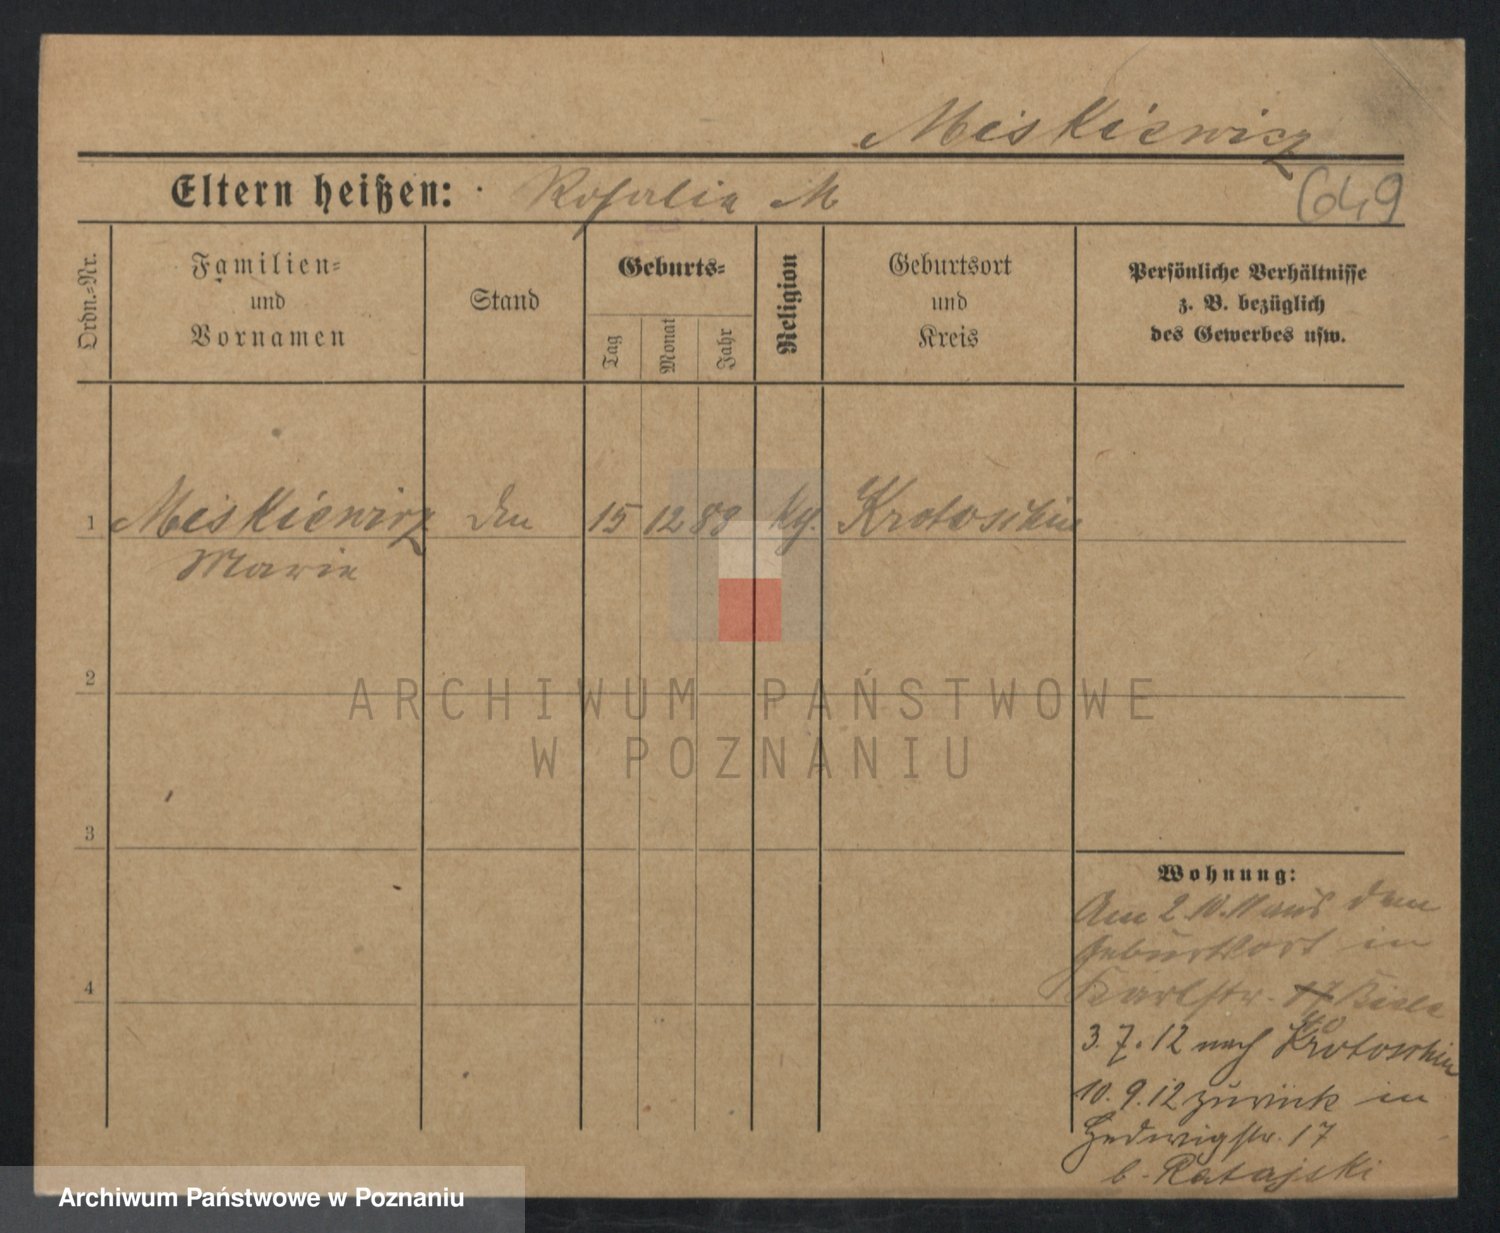 Miskiewicz
Eltern heißen: Rosalia M
649
Ordn.=Nr.
Familien=
und
Vornamen
Stand
Geburts=
Tag
Monat
Jahr
Religion
Geburtsort
und
Kreis
Persönliche Verhältnisse
z. B. bezüglich
des Gewerbes usw.
1 Miskiewicz 15 12 89 Krotoschin
Marie
2
3
4
Wohnung:
Am 2.10.11 aus dem
Geburtsort in
Karlstr. 17
3.7.12 nach Krotoschin
10.9.12 zurück in
Hedwigstr. 17
b. Ratajski
ARCHIWUM PAŃSTWOWE
W POZNANIU
Archiwum Państwowe w Poznaniu